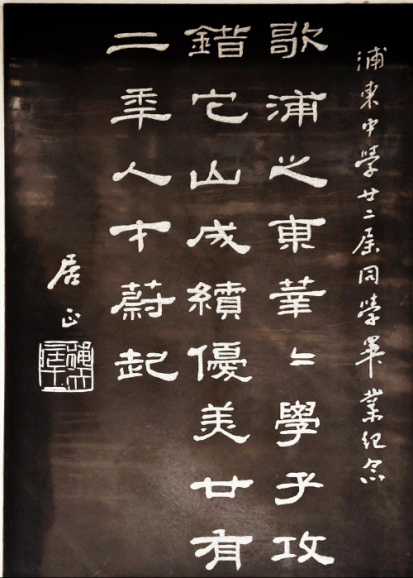 浦東中學廿二屆同學畢業紀念
歇浦之東莘〻學子攻
錯它山成績優美廿有
二秊人才蔚起
居正